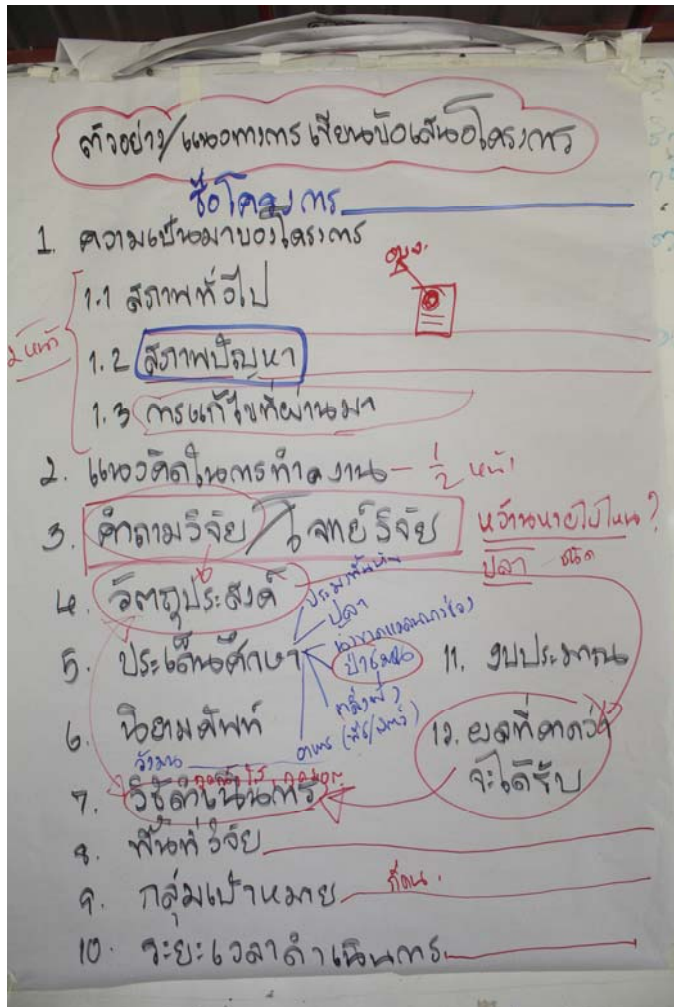 ตัวอย่าง/แนวทางการเขียนข้อเสนอโครงการ
ชื่อโครงการ
1. ความเป็นมาของโครงการ
1.1 สภาพทั่วไป
2 หน้า
1.2 สภาพปัญหา
1.3 การแก้ไขที่ผ่านมา
2. แนวคิดในการทำงาน - 1/2 หน้า
3. คำถามวิจัย / โจทย์วิจัย
หว้านหายไปไหน?
ปลา ชนิด
4. วัตถุประสงค์
5. ประเด็นศึกษา
ปลา
ป่าชุมชน
(พืช/สัตว์)
อาหาร
6. นิยามศัพท์
7. วิธีดำเนินการ
8. พื้นที่วิจัย
9. กลุ่มเป้าหมาย กี่คน.
10. ระยะเวลาดำเนินการ
11. งบประมาณ
12. ผลที่คาดว่า
จะได้รับ